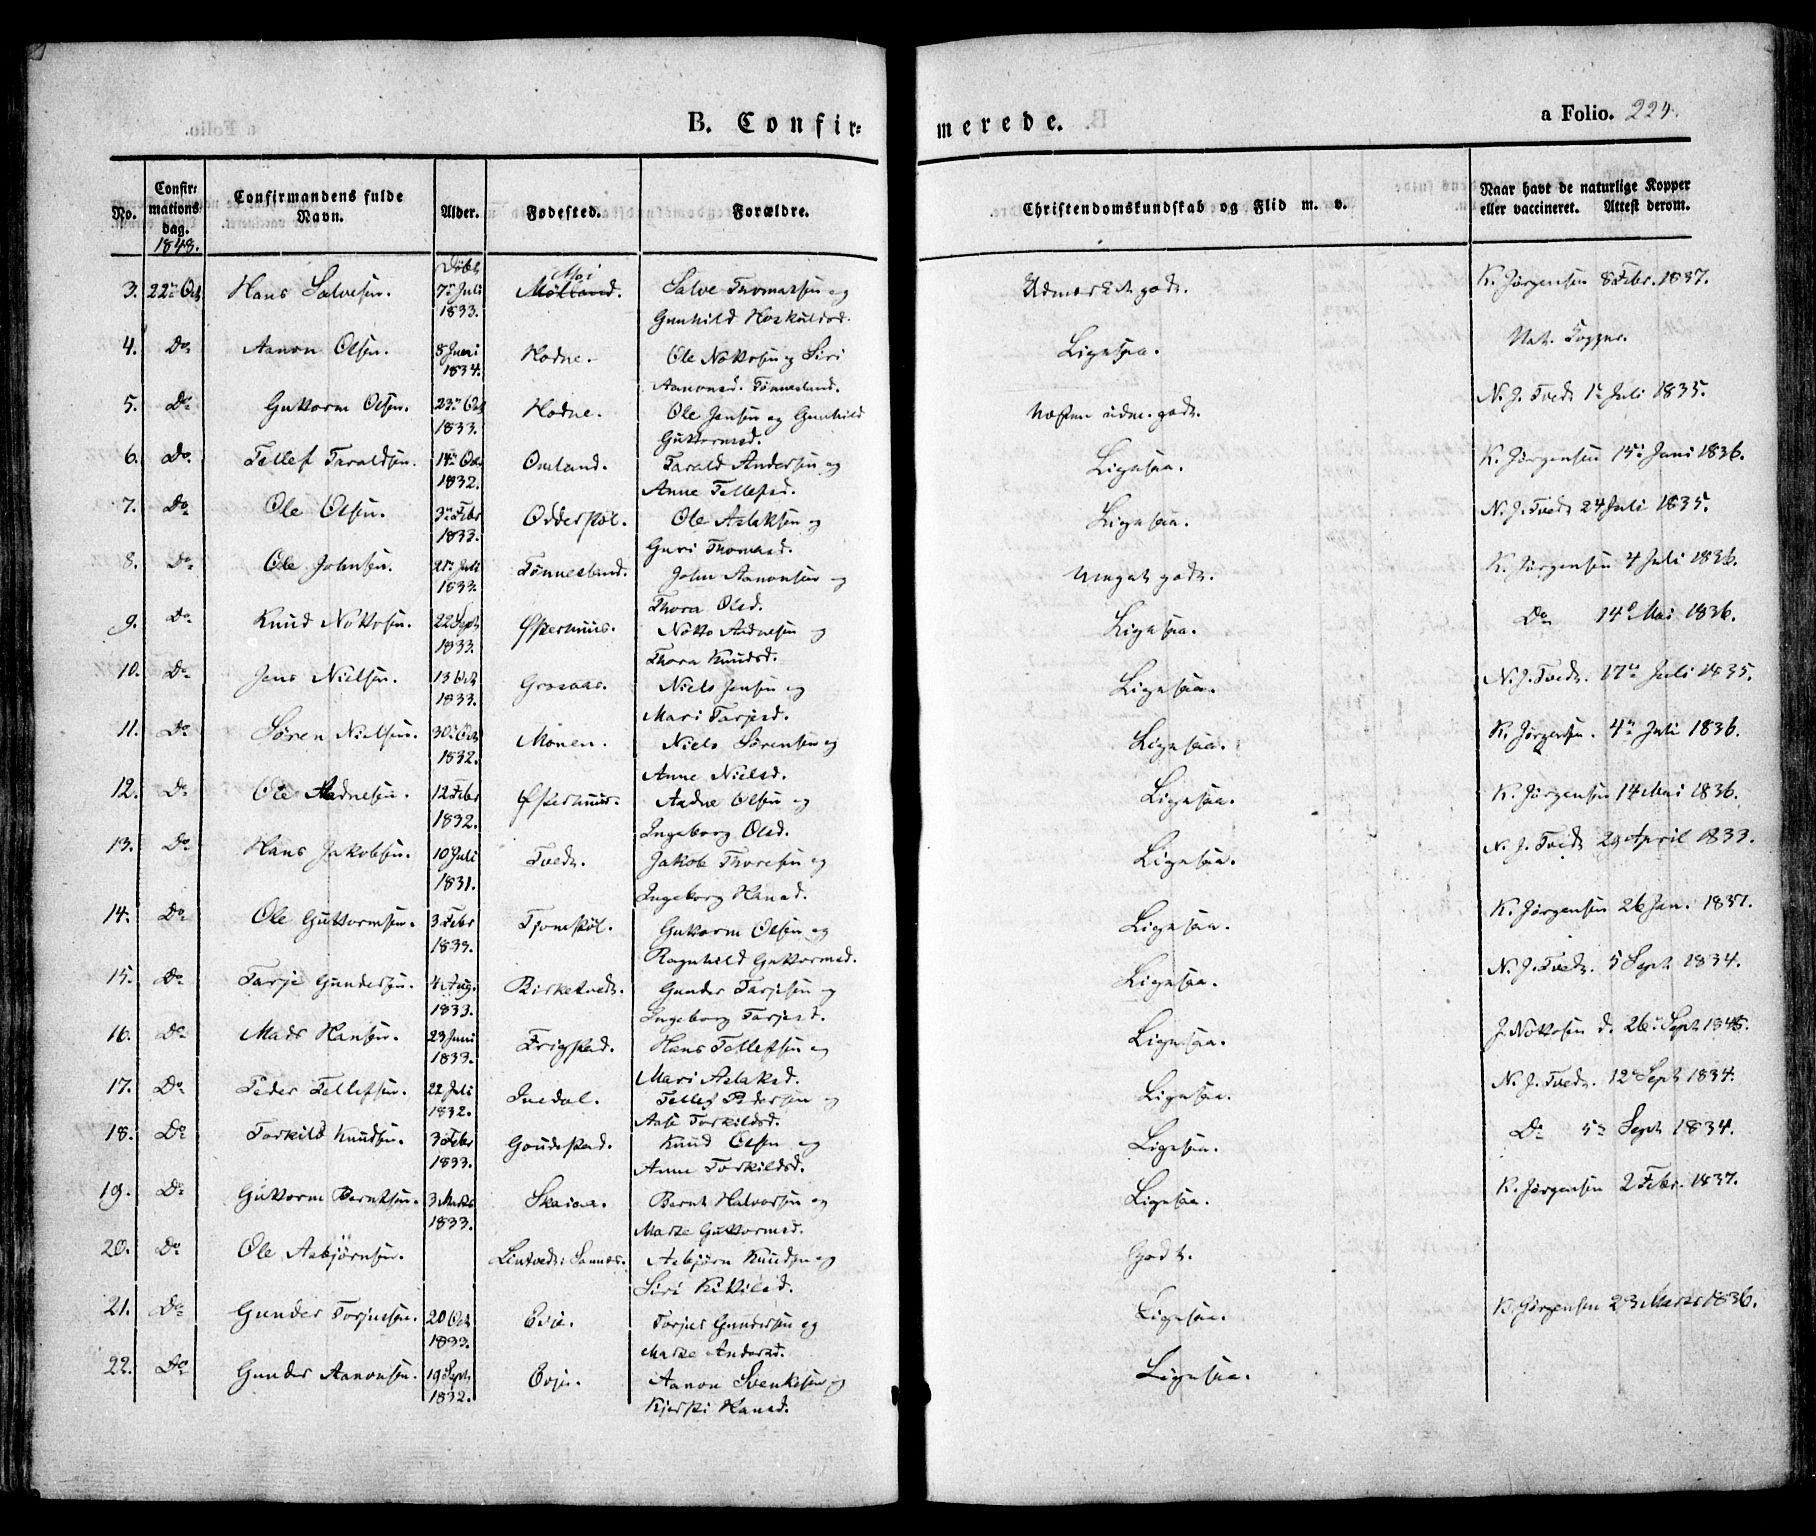 B. Confir= merede.
a Folio. 224.
No.
Confir=
mations
dag.
1848.
Confirmandens fulde
Navn.
Alder.
Fødested.
Forældre.
Christendomskundskab og Flid m. v.
Naar havt de naturlige Kopper
eller vaccineret. Attest derom.
3. 22de Oct Hans Salvesen. Døbt 7de Juli 1833. Mølland. Moi Salve Thomassen og Gunhild Hoskuldsd. Udmærket godt. K. Jørgensen 8 Febr. 1837.
4. Do Aanon Olsen. 8 Juni 1834. Hodne. Ole Nottosen og Siri Aanonsd. Tønnesland. Ligesaa. Nat. Kopper.
5. Do Guttorm Olsen. 23de Oct 1833. Hodne. Ole Jensen og Gunhild Guttormsd. Næsten udm. godt. N. J. Tvedt 1te Juli 1835.
6. Do Tellef Taraldsen. 14de Oct 1832. Omland. Tarald Andersen og Anne Tellefsd. Ligesaa. K. Jørgensen 15de Juni 1836.
7. Do Ole Olsen. 3de Febr 1833. Odderstøl. Ole Aslaksen og Guri Thomasd. Ligesaa. N. J. Tvedt 24 Juli 1835.
8. Do Ole Johnsen. 21de Juli 1833. Tønnesland. John Aanonsen og Thora Olsd. Meget godt. K. Jørgensen 4 Juli 1836.
9. Do Knud Nottosen. 22 Sept 1833. Østerhuus. Notto Aadnesen og Thora Knudsd. Ligesaa. Do 14de Mai 1836.
10. Do Jens Nielsen. 13 Oct 1833. Grosaas. Niels Jensen og Mari Tarjesd. Ligesaa. N. J. Tvedt. 17de Juli 1835.
11. Do Søren Nielsen. 30te Oct 1832. Monen. Niels Sørensen og Anne Nielsd. Ligesaa. K. Jørgensen. 4de Juli 1836.
12. Do Ole Aadnesen. 12 Febr 1832. Østerhuus. Aadne Olsen og Ingeborg Olsd. Ligesaa. K. Jørgensen 14 Mai 1836.
13. Do Hans Jakobsen. 10 Juli 1831. Tvedt. Jakob Thoresen og Ingeborg Hansd. Ligesaa. N. J. Tvedt 29 April 1833.
14. Do Ole Guttormsen. 3 Febr 1833. Tjomstøl. Guttorm Olsen og Ragnhild Guttormsd. Ligesaa. K. Jørgensen 26 Jan. 1837.
15. Do Tarje Gundersen. 4 Aug. 1833. Birketvedt. Gunder Tarjesen og Ingeborg Tarjesd. Ligesaa. N. J. Tvedt. 5 Sept 1834.
16. Do Mads Hansen. 23 Juni 1833. Frigstad. Hans Tellefsen og Mari Aslaksd. Ligesaa. J. Nottosen d. 26de Sept 1845.
17. Do Peder Tellefsen. 22 Juli 1832. Inedal. Tellef Pedersen og Aase Torkildsd. Ligesaa. N. J. Tvedt. 12te Sept 1834.
18. Do Torkild Knudsen. 3 Febr 1833. Goudestad. Knud Olsen og Anne Torkildsd. Ligesaa. Do 5te Sept 1834.
19. Do Guttorm Berntsen. 3 Marts 1833. Skaiaa. Bernt Halvorsen og Marte Guttormsd. Ligesaa. K. Jørgensen 2 Febr. 1837.
20. Do Ole Asbjørnsen. Lintvedt: Asbjørn Knudsen og Siri Kittilsd. Godt.
21. Do Gunder Torjusen. 20 Oct 1833. Evje. Torjus Gundersen og Marte Andersd. Ligesaa. K. Jørgensen 23 Marts 1836.
22. Do Gunder Aanonsen. 19 Sept 1832. Evje. Aanon Svenkesen og Kjersti Hansd. Ligesaa.